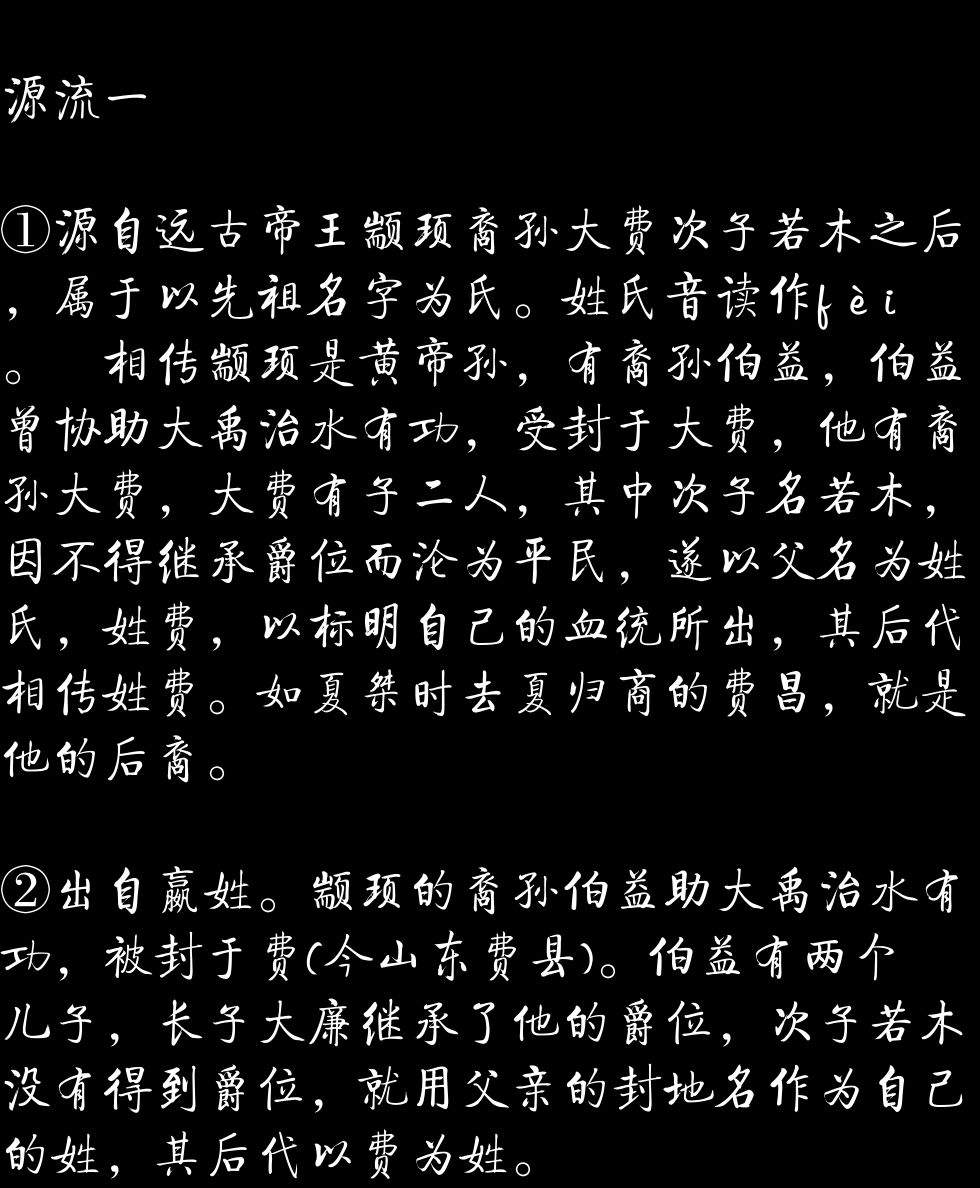 源流一
①源自远古帝王颛顼裔孙大费次子若木之后
，属于以先祖名字为氏。姓氏音读作fèi
。 相传颛顼是黄帝孙，有裔孙伯益，伯益
曾协助大禹治水有功，受封于大费，他有裔
孙大费，大费有子二人，其中次子名若木，
因不得继承爵位而沦为平民，遂以父名为姓
氏，姓费，以标明自己的血统所出，其后代
相传姓费。如夏桀时去夏归商的费昌，就是
他的后裔。
②出自嬴姓。颛顼的裔孙伯益助大禹治水有
功，被封于费(今山东费县)。伯益有两个
儿子，长子大廉继承了他的爵位，次子若木
没有得到爵位，就用父亲的封地名作为自己
的姓，其后代以费为姓。